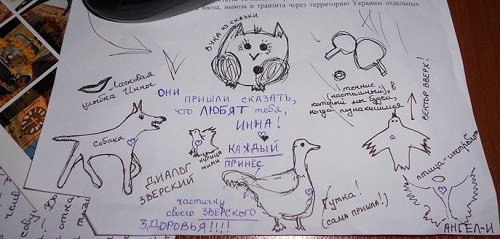 ввоза, вывоза и транзита через территорию Украины отдельных
БУКА ИЗ СКАЗКИ
Ласковая
улыбка Инны
ОНИ
ПРИШЛИ СКАЗАТЬ,
ЧТО ЛЮБЯТ тебя,
ИННА!
теннис
(настольный), в
который мы будем,
когда познакомимся
ВЕКТОР ВВЕРХ!
собака
курица
ДИАЛОГ
ЗВЕРСКИЙ
КАЖДЫЙ
ПРИНЁС
частичку
своего ЗВЕРСКОГО
ЗДОРОВЬЯ!!!!
Утка!
(сама пришла!)
АНГЕЛ-И